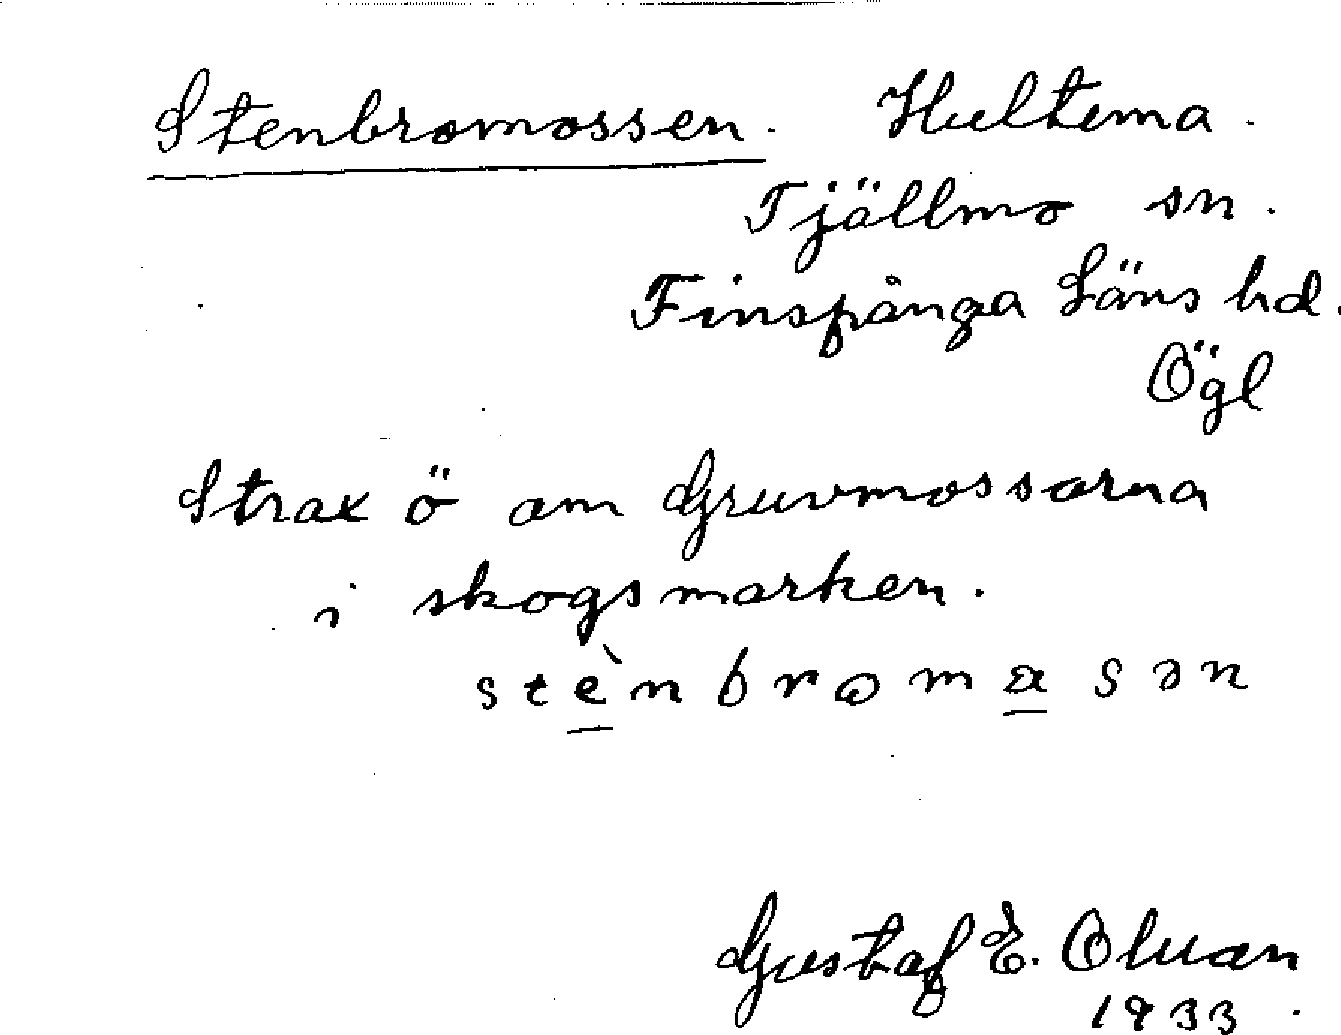 Stenbromossen. Hultema.
Tjällmo sn.
Finspånga Läns hd.
Ögl
Strax ö om Gruvmossarna
i skogsmarken.
stènbromasən
Gustaf E.
1933.